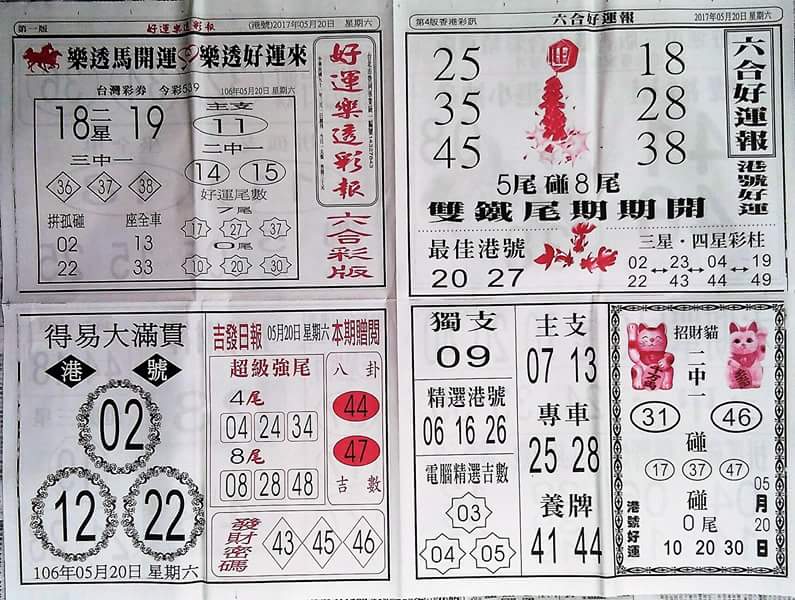 第一版
好運樂透彩報
(港號)2017年05月20日 星期六
樂透馬開運
樂透好運來
台灣彩券 今彩539
106年05月20日 星期六
18 二星 19
三中一
36 37 38
拼孤碰 座全車
02 13
22 33
主支
11
二中一
14 15
好運尾數
7尾
17 27 37
0尾
10 20 30
好運樂透彩報
六合彩版
第4版香港彩訊
六合好運報
2017年05月20日 星期六
25 旺 18
35 28
45 38
5尾碰8尾
雙鐵尾期期開
六合好運報
港號好運
最佳港號
20 27
三星·四星彩柱
02 23 04 19
22 43 44 49
得易大滿貫
港 號
02
12 22
106年05月20日 星期六
吉發日報 05月20日 星期六 本期贈閱
超級強尾
4尾
04 24 34
8尾
08 28 48
八卦
44
47
吉數
發財密碼
43 45 46
獨支
09
精選港號
06 16 26
電腦精選吉數
03
04 05
主支
07 13
專車
25 28
養牌
41 44
招財貓
二中一
31 46
碰
17 37 47
碰
0尾
10 20 30
港號好運
05月20日